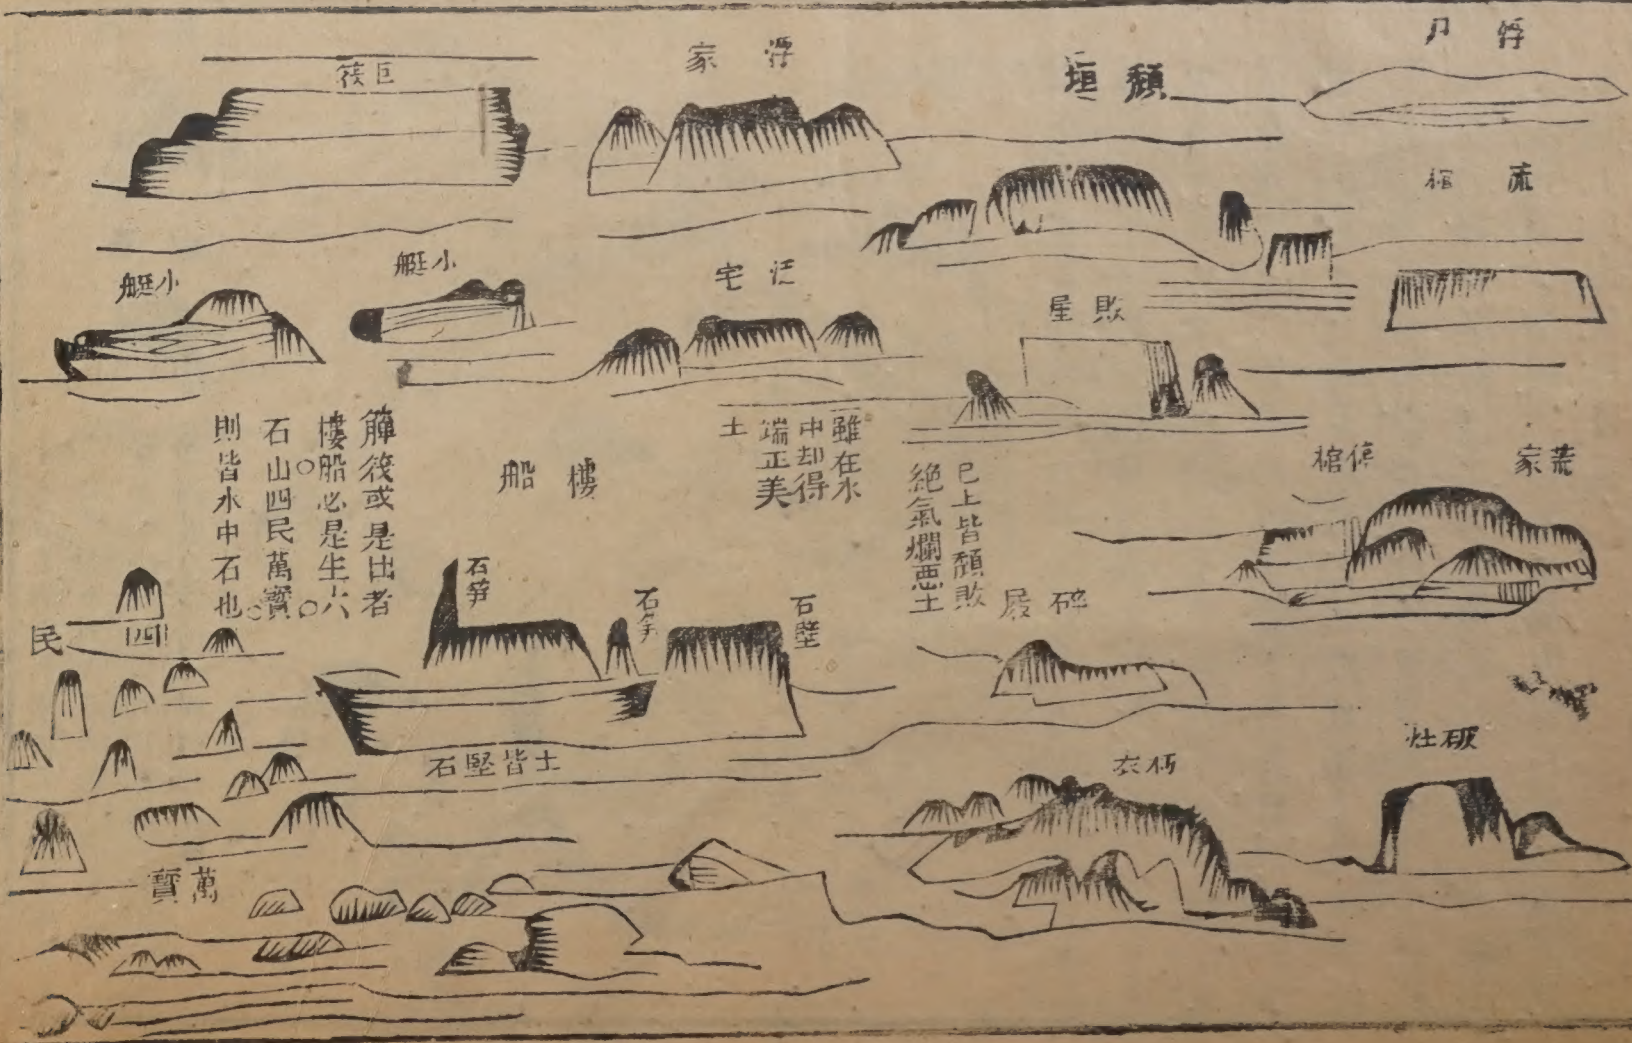 浮尸
頹垣
浮家
巨筏
流棺
泛宅
小艇
小艇
敗星
荒家
停棺
已上皆頹敗
絕氣爛惡土
雖在水
中却得
端正美
土
樓船
簰筏或是出者
樓船必是生六
石山四民萬寶
則皆水中石也
碎屐
石壁
石笋
石笋
四民
破灶
朽衣
土皆堅石
萬寶